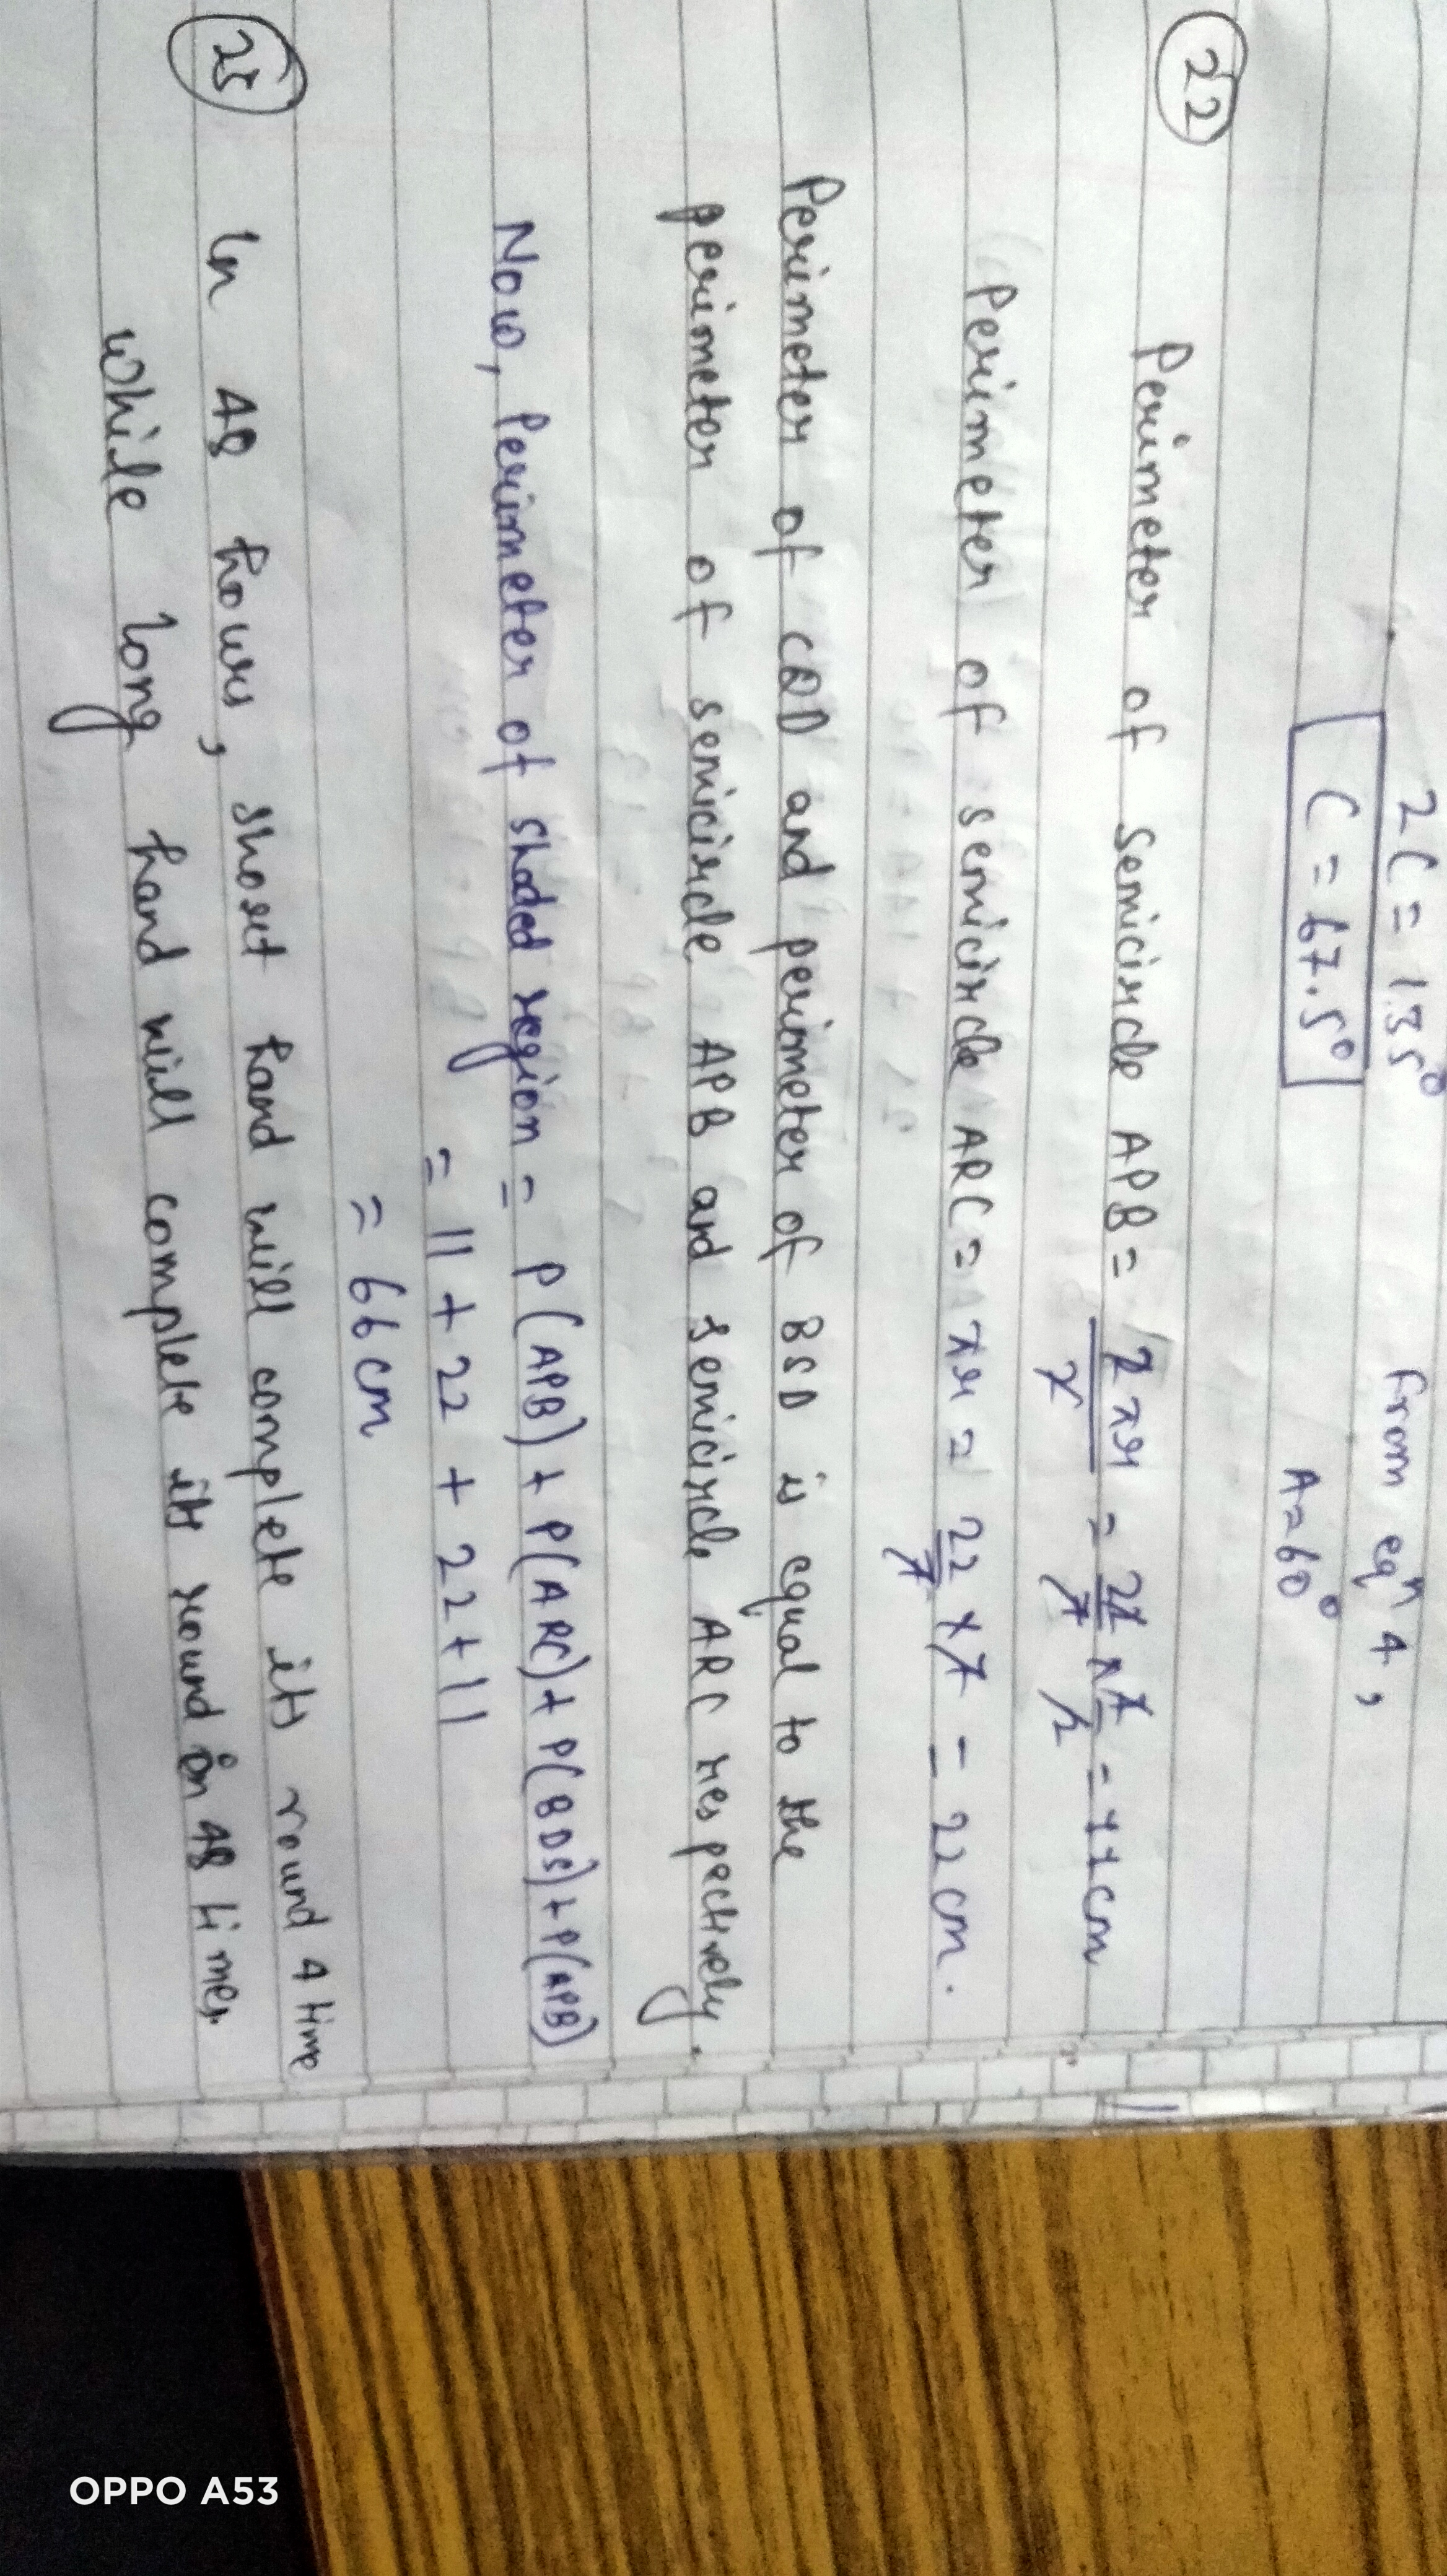 2C = 135°
From eqⁿ 4,
C = 67.5°
A = 60°
22
Perimeter of semicircle APB = 2πr/2 = 22/7 × 7/2 = 11cm
Perimeter of semicircle ARC = πr = 22/7 × 7 = 22cm.
Perimeter of CQD and perimeter of BSD is equal to the
perimeter of semicircle APB and semicircle ARC respectively.
Now, Perimeter of shaded region = P(APB) + P(ARC) + P(BDS) + P(APB)
= 11 + 22 + 22 + 11
= 66 cm
25
In 48 hours, short hand will complete its round 4 time
while long hand will complete its round in 48 times.
OPPO A53